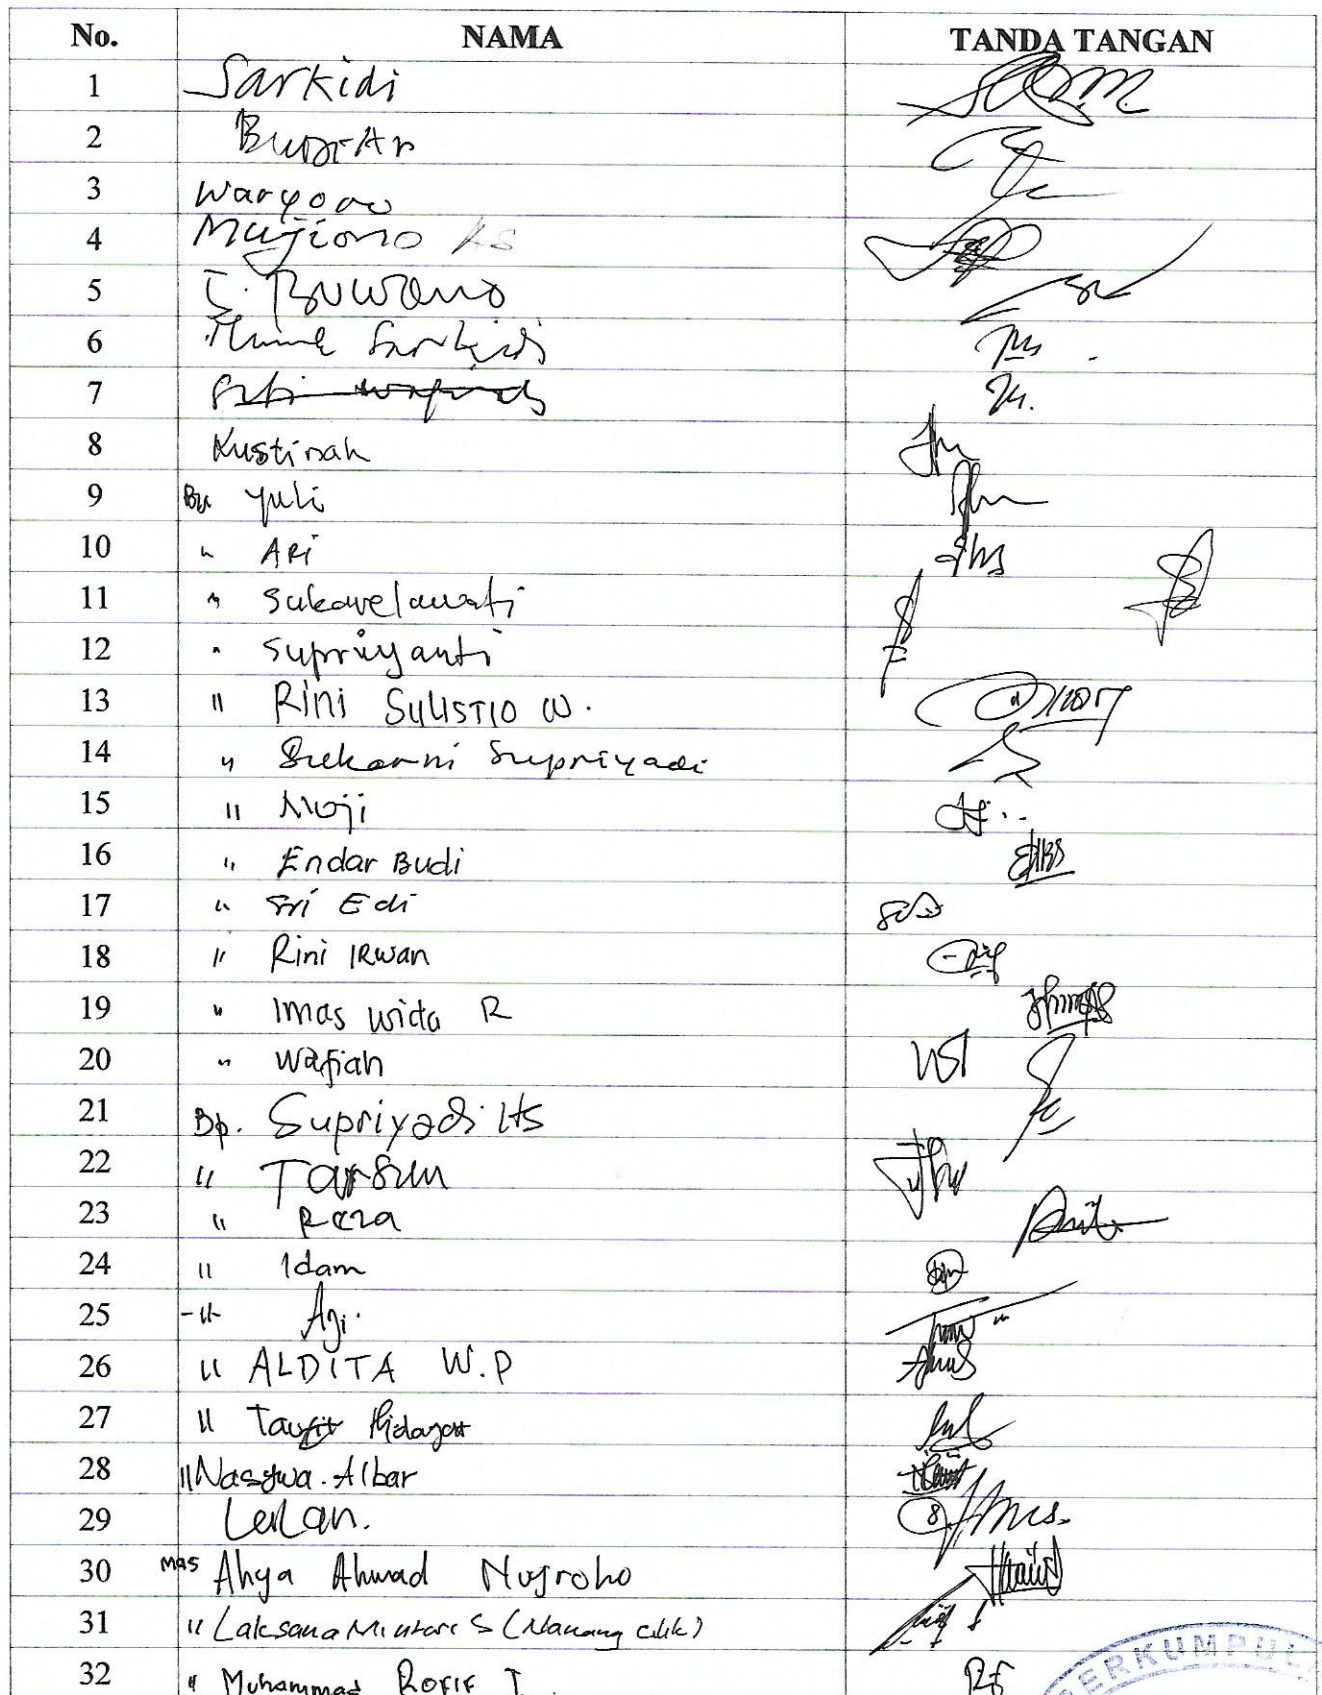 No. NAMA TANDA TANGAN
1 Sarkidi
2
3 Waryono
4 Mujiono AS
5 I. Buwono
6 Sarkidi
7
8 Kustinah
9 Bu Yuli
10 " ARi
11 " Sukavelawati
12 " Supriyanti
13 " Rini Sulistio W.
14 " Sukarni Supriyadi
15 " Moji
16 " Endar Budi
17 " Sri Edi
18 " Rini IRwan
19 " Imas wida R
20 " Wafiah
21 Bp. Supriyadi HS
22 " Tarsun
23 " Reza
24 " Idam
25 -"- Aji.
26 " ALDITA W.P
27 " Taufik Hidayat
28 " Nasywa. Albar
29
30 mas Ahya Ahmad Nugroho
31 " Laksana Mintari S (Nanang cilik)
32 " Muhammad ROFIF I
PERKUMPUL